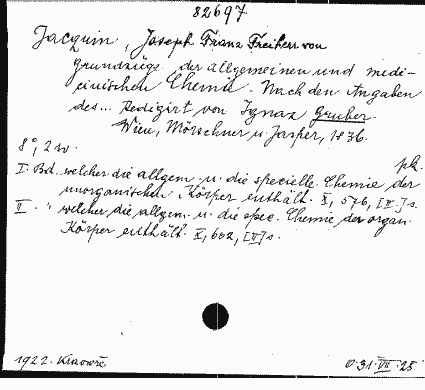 82697
Jacquin, Joseph Franz Freiherr von
Grundzüge der allgemeinen und medi-
cinischen Chemie. Nach den Angaben
des... Redigirt von Ignaz Gruber.
Wien, Mörschner u. Jasper, 1836.
8°, 2 sv.
pk.
I. Bd. welcher die allgem. u. die specielle Chemie der
unorganischen Körper enthält. X, 576, [IV] s.
II. " welcher die allgem. u. die spec. Chemie der organ.
Körper enthält. X, 602, [II] s.
1922. Kinovrč
0·31·VII·25